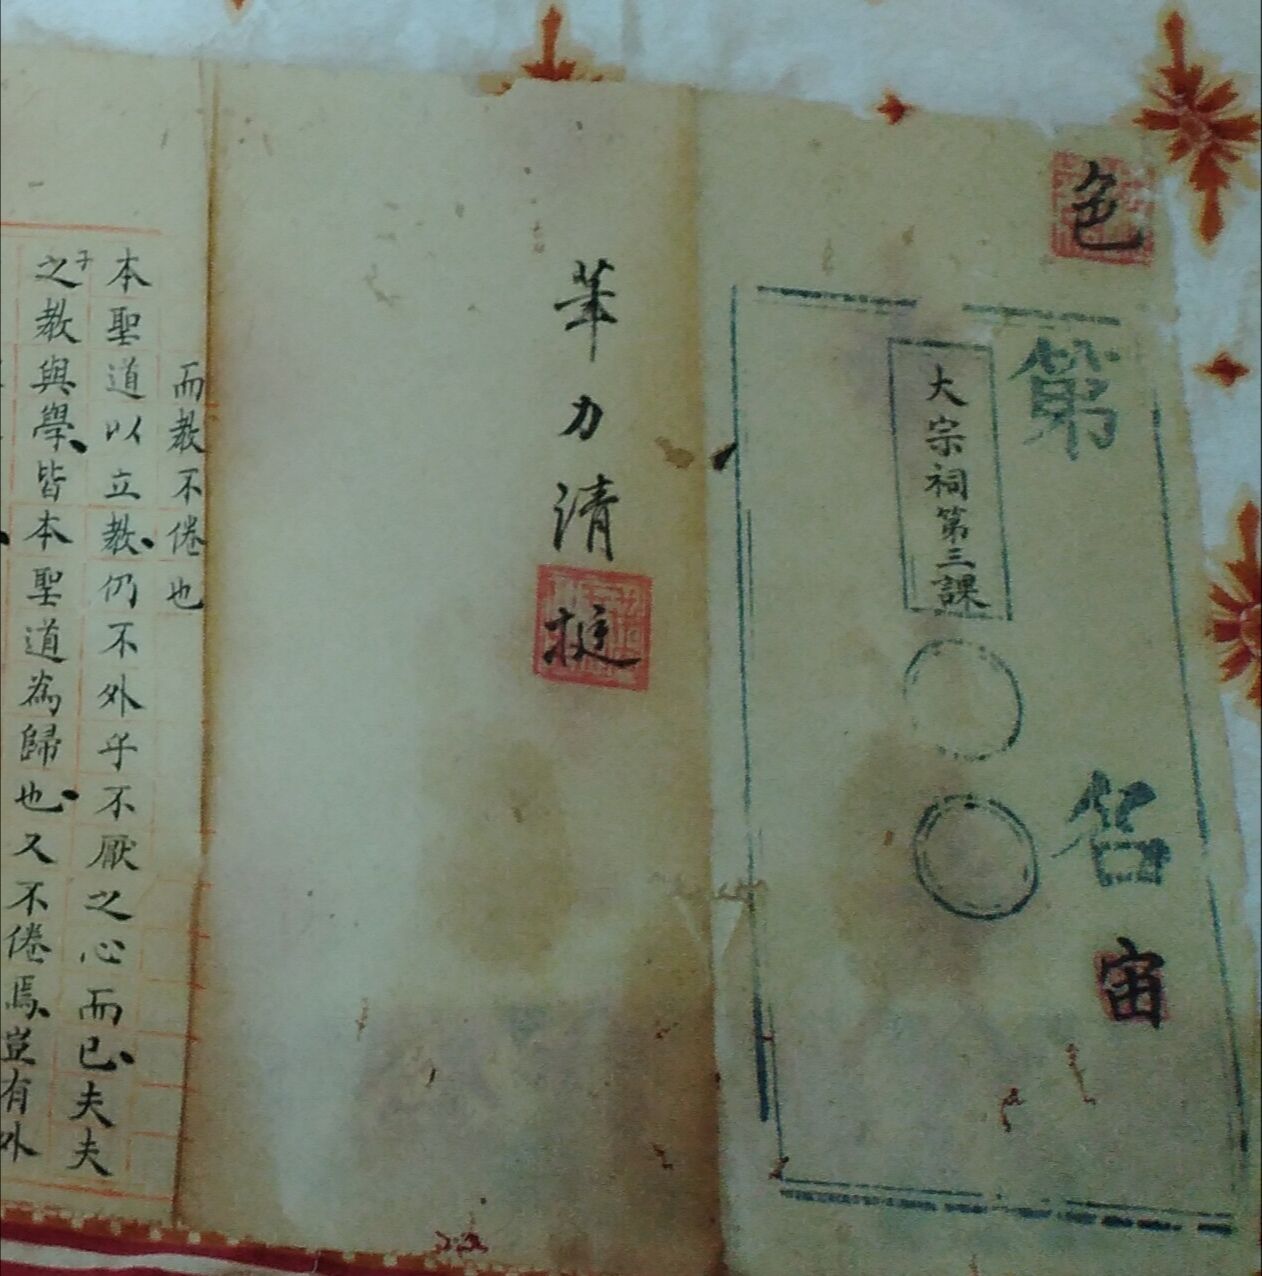 色
第
名
宙
大宗祠第三課
筆力清挺
而教不倦也
本聖道以立教仍不外乎不厭之心而已夫夫
子
之教與學皆本聖道為歸也又不倦焉豈有外